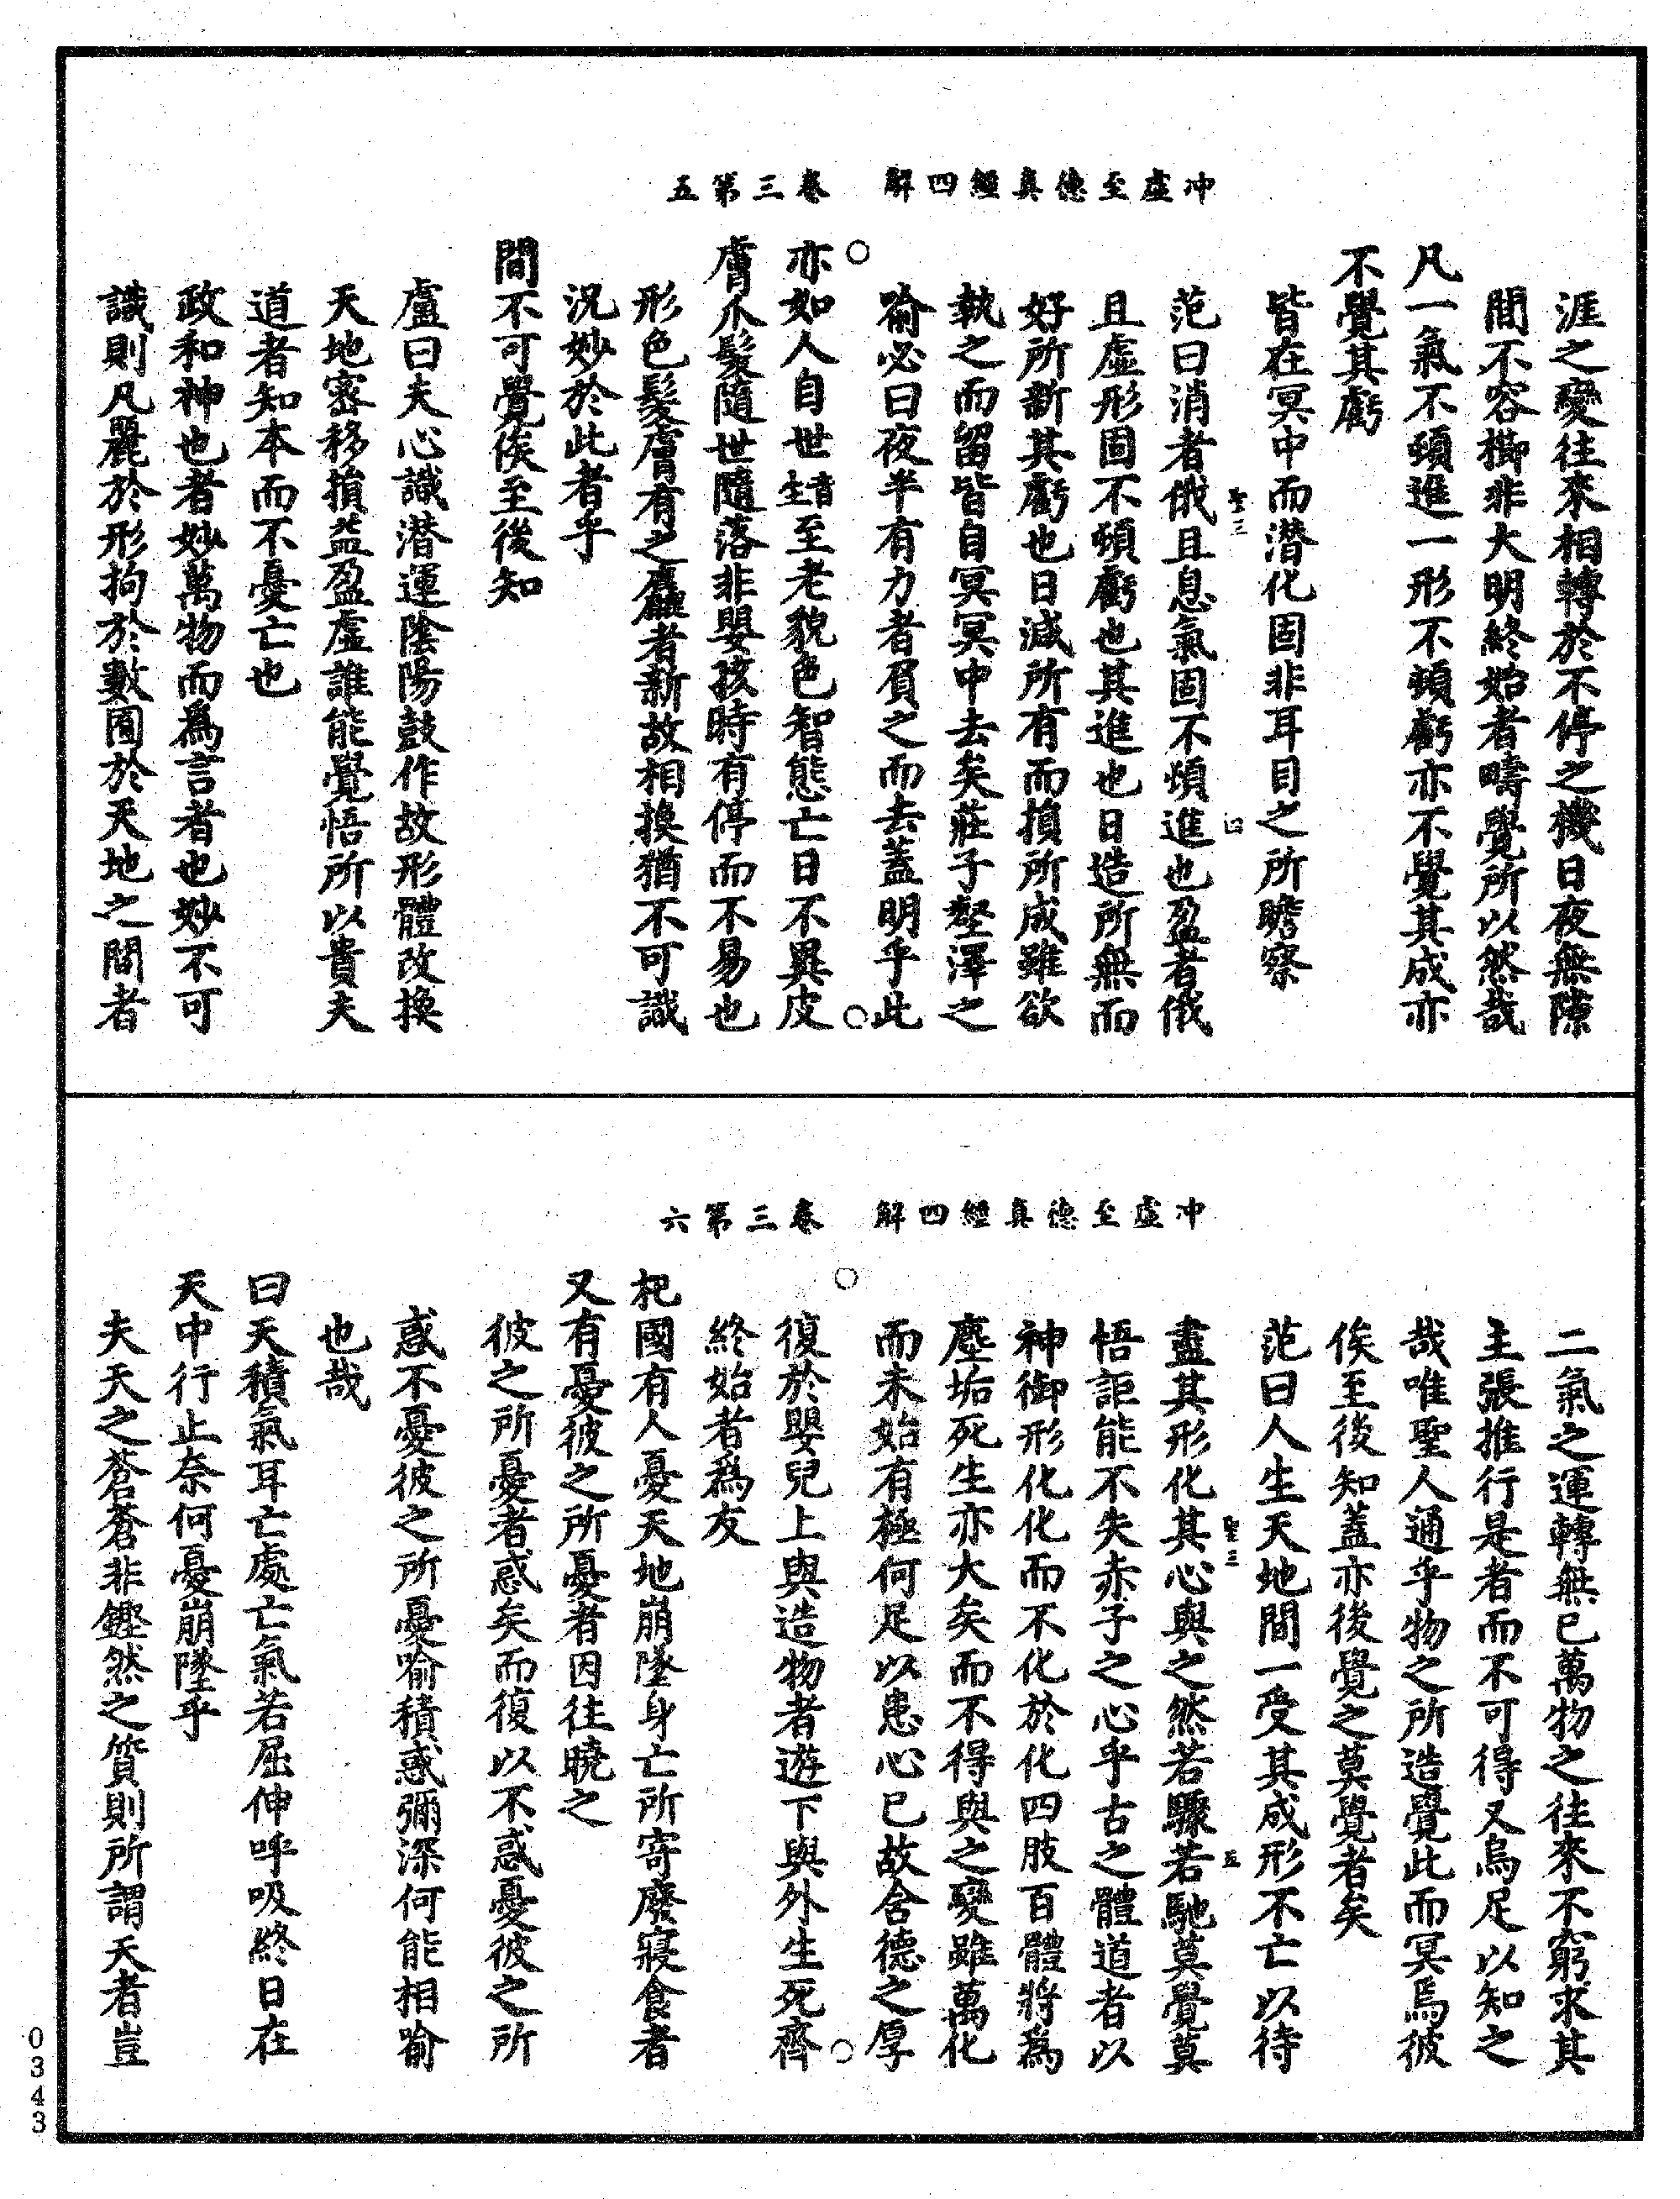 冲虛至德真經四解　卷三第五
涯之變往來相轉於不停之機日夜無隙
間不容擲非大明終始者疇覺所以然哉
凡一氣不頓進一形不頓虧亦不覺其成亦
不覺其虧
皆在冥中而潛化固非耳目之所瞻察
聖三　四
范曰消者俄且息氣固不頓進也盈者俄
且虛形固不頓虧也其進也日造所無而
好所新其虧也日減所有而損所成雖欲
執之而留皆自冥冥中去矣莊子壑澤之
喻必曰夜半有力者負之而去蓋明乎此
亦如人自世音生至老貌色智態亡日不異皮
膚爪髮隨世隨落非嬰孩時有停而不易也
形色髮膚有之麤者新故相換猶不可識
況妙於此者乎
間不可覺俟至後知
盧曰夫心識潛運陰陽鼓作故形體改換
天地密移損益盈虛誰能覺悟所以貴夫
道者知本而不憂亡也
政和神也者妙萬物而為言者也妙不可
識則凡麗於形拘於數囿於天地之間者
冲虛至德真經四解　卷三第六
二氣之運轉無已萬物之往來不窮求其
主張推行是者而不可得又烏足以知之
哉唯聖人通乎物之所造覺此而冥焉彼
俟至後知蓋亦後覺之莫覺者矣
范曰人生天地間一受其成形不亡以待
聖三　五
盡其形化其心與之然若驟若馳莫覺莫
悟詎能不失赤子之心乎古之體道者以
神御形化化而不化於化四肢百體將為
塵垢死生亦大矣而不得與之變雖萬化
而未始有極何足以患心已故含德之厚
復於嬰兒上與造物者遊下與外生死齊
終始者為友
杞國有人憂天地崩墜身亡所寄廢寢食者
又有憂彼之所憂者因往曉之
彼之所憂者惑矣而復以不惑憂彼之所
惑不憂彼之所憂喻積惑彌深何能相喻
也哉
曰天積氣耳亡處亡氣若屈伸呼吸終日在
天中行止奈何憂崩墜乎
夫天之蒼蒼非鏗然之質則所謂天者豈
0343